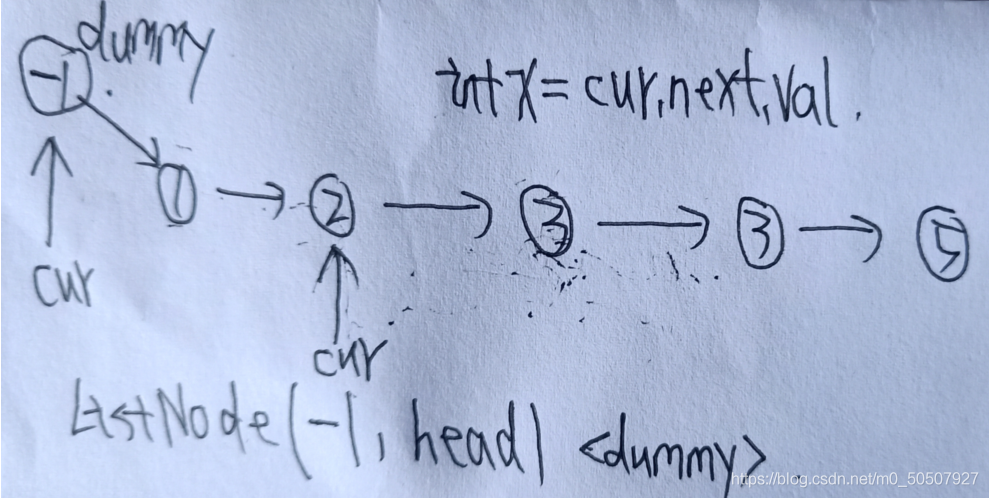 dummy
-1
int x = cur.next.val.
1 → 2 → 3 → 3 → 5
cur
cur
ListNode(-1, head) <dummy>
https://blog.csdn.net/m0_50507927